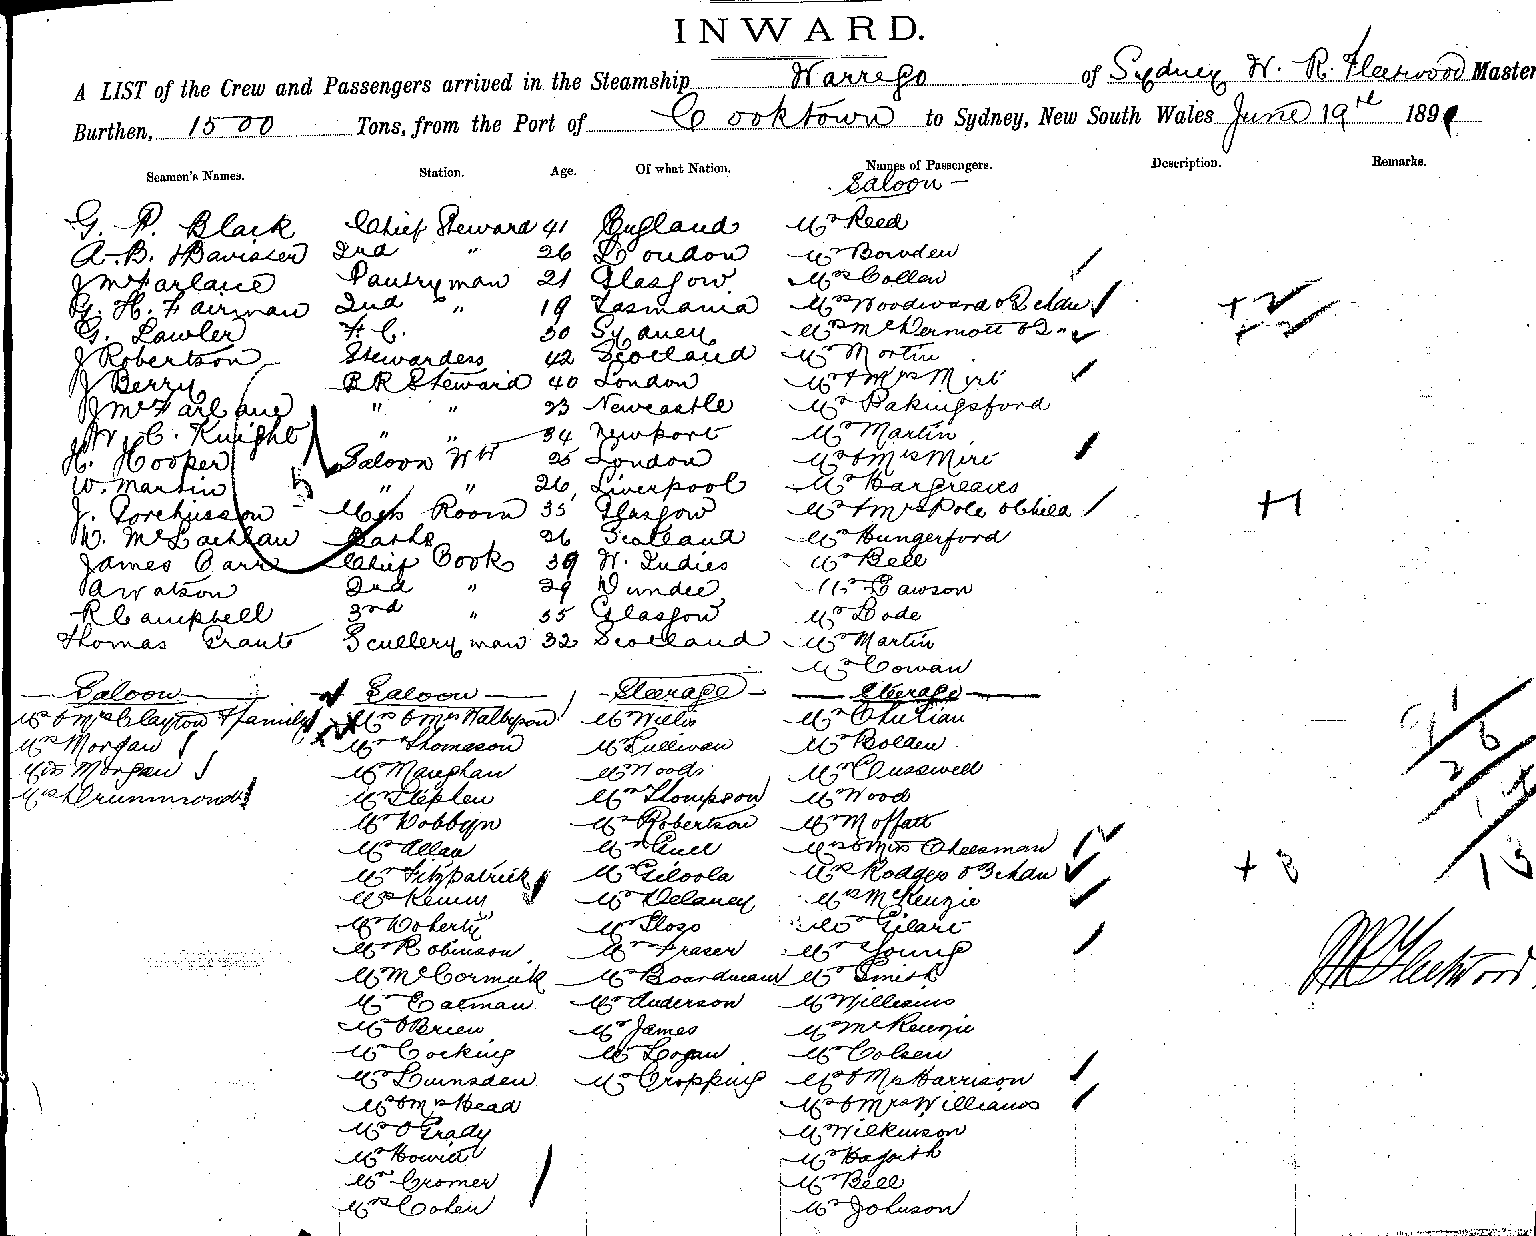 INWARD.
A LIST of the Crew and Passengers arrived in the Steamship Warrego of Sydney W. R. Fleetwood Master
Burthen, 1500 Tons, from the Port of Cooktown to Sydney, New South Wales June 19th 189
Seamen's Names. Station. Age. Of what Nation. Names of Passengers. Description. Remarks.
Saloon
G. P. Black Chief Steward 41 England Mr Reed
A. B. 2nd " 26 London Mr Bowden
J McFarlane Pantryman 21 Glasgow Mrs Collen
G. H. Fairman 2nd " 19 Tasmania Mrs Woodward & 2 chdn + 2
G. Lawler F. C. 30 Sydney Mrs McDermott & 2 " + 2
J Robertson Stewardess 42 Scotland Mr Mortin
J Berry B R Steward 40 London Mr & Mrs Mirt
J McFarlane " " 23 Newcastle Mr Pakingsford
W. C. Knight " " 34 Newport Mr Martin
H. Hooper Saloon Wtr 25 London Mr & Mrs Mirt
W. Martin " " 26 Liverpool Mr Hargreaves
J. Mess Room 35 Glasgow Mr & Mrs Pole & Child + 1
McLachlan Baths 26 Scotland Mr Hungerford
James Carr Chief Cook 39 W. Indies Mr Bell
A Watson 2nd " 29 Dundee Mr Lawson
R Campbell 3rd " 35 Glasgow Mr Bode
Thomas Grant Scullery man 32 Scotland Mr Martin
Mr Cowan
Saloon Saloon Steerage Steerage
Mr & Mrs Clayton & family Mr & Mrs Mr Willis Mr Christian
Mrs Morgan Mr Thomason Mr Sullivan Mr Bolden
Miss Morgan Mr Maughan Mr Woods Mr
Mrs Drummond Mr Stephen Mr Thompson Mr Wood
Mr Dobbyn Mr Robertson Mr Moffatt
Mr Allan Mr Mrs & Miss Cheesman
Mr Fitzpatrick Mr Giloola Mrs Rodgers & 3 chdn + 3
Mrs Kenny Mr Delaney Mrs McKenzie
Mr Doherty Mr Sloss Mr
Mr Robinson Mr Fraser Mr Young
Mr McCormick Mr Boardman Mr Smith
Mr Eatman Mr Anderson Mr Williams
Mr O'Brien Mr James Mr McKenzie
Mr Cocking Mr Logan Mr Colsen
Mr Lumsden Mr Cropping Mr & Mrs Harrison
Mr & Mrs Head Mr & Mrs Williams
Mr O'Grady Mr Wilkinson
Mr Howitt Mr
Mr Cromer Mr Bell
Mrs Cohen Mr Johnson
W R Fleetwood